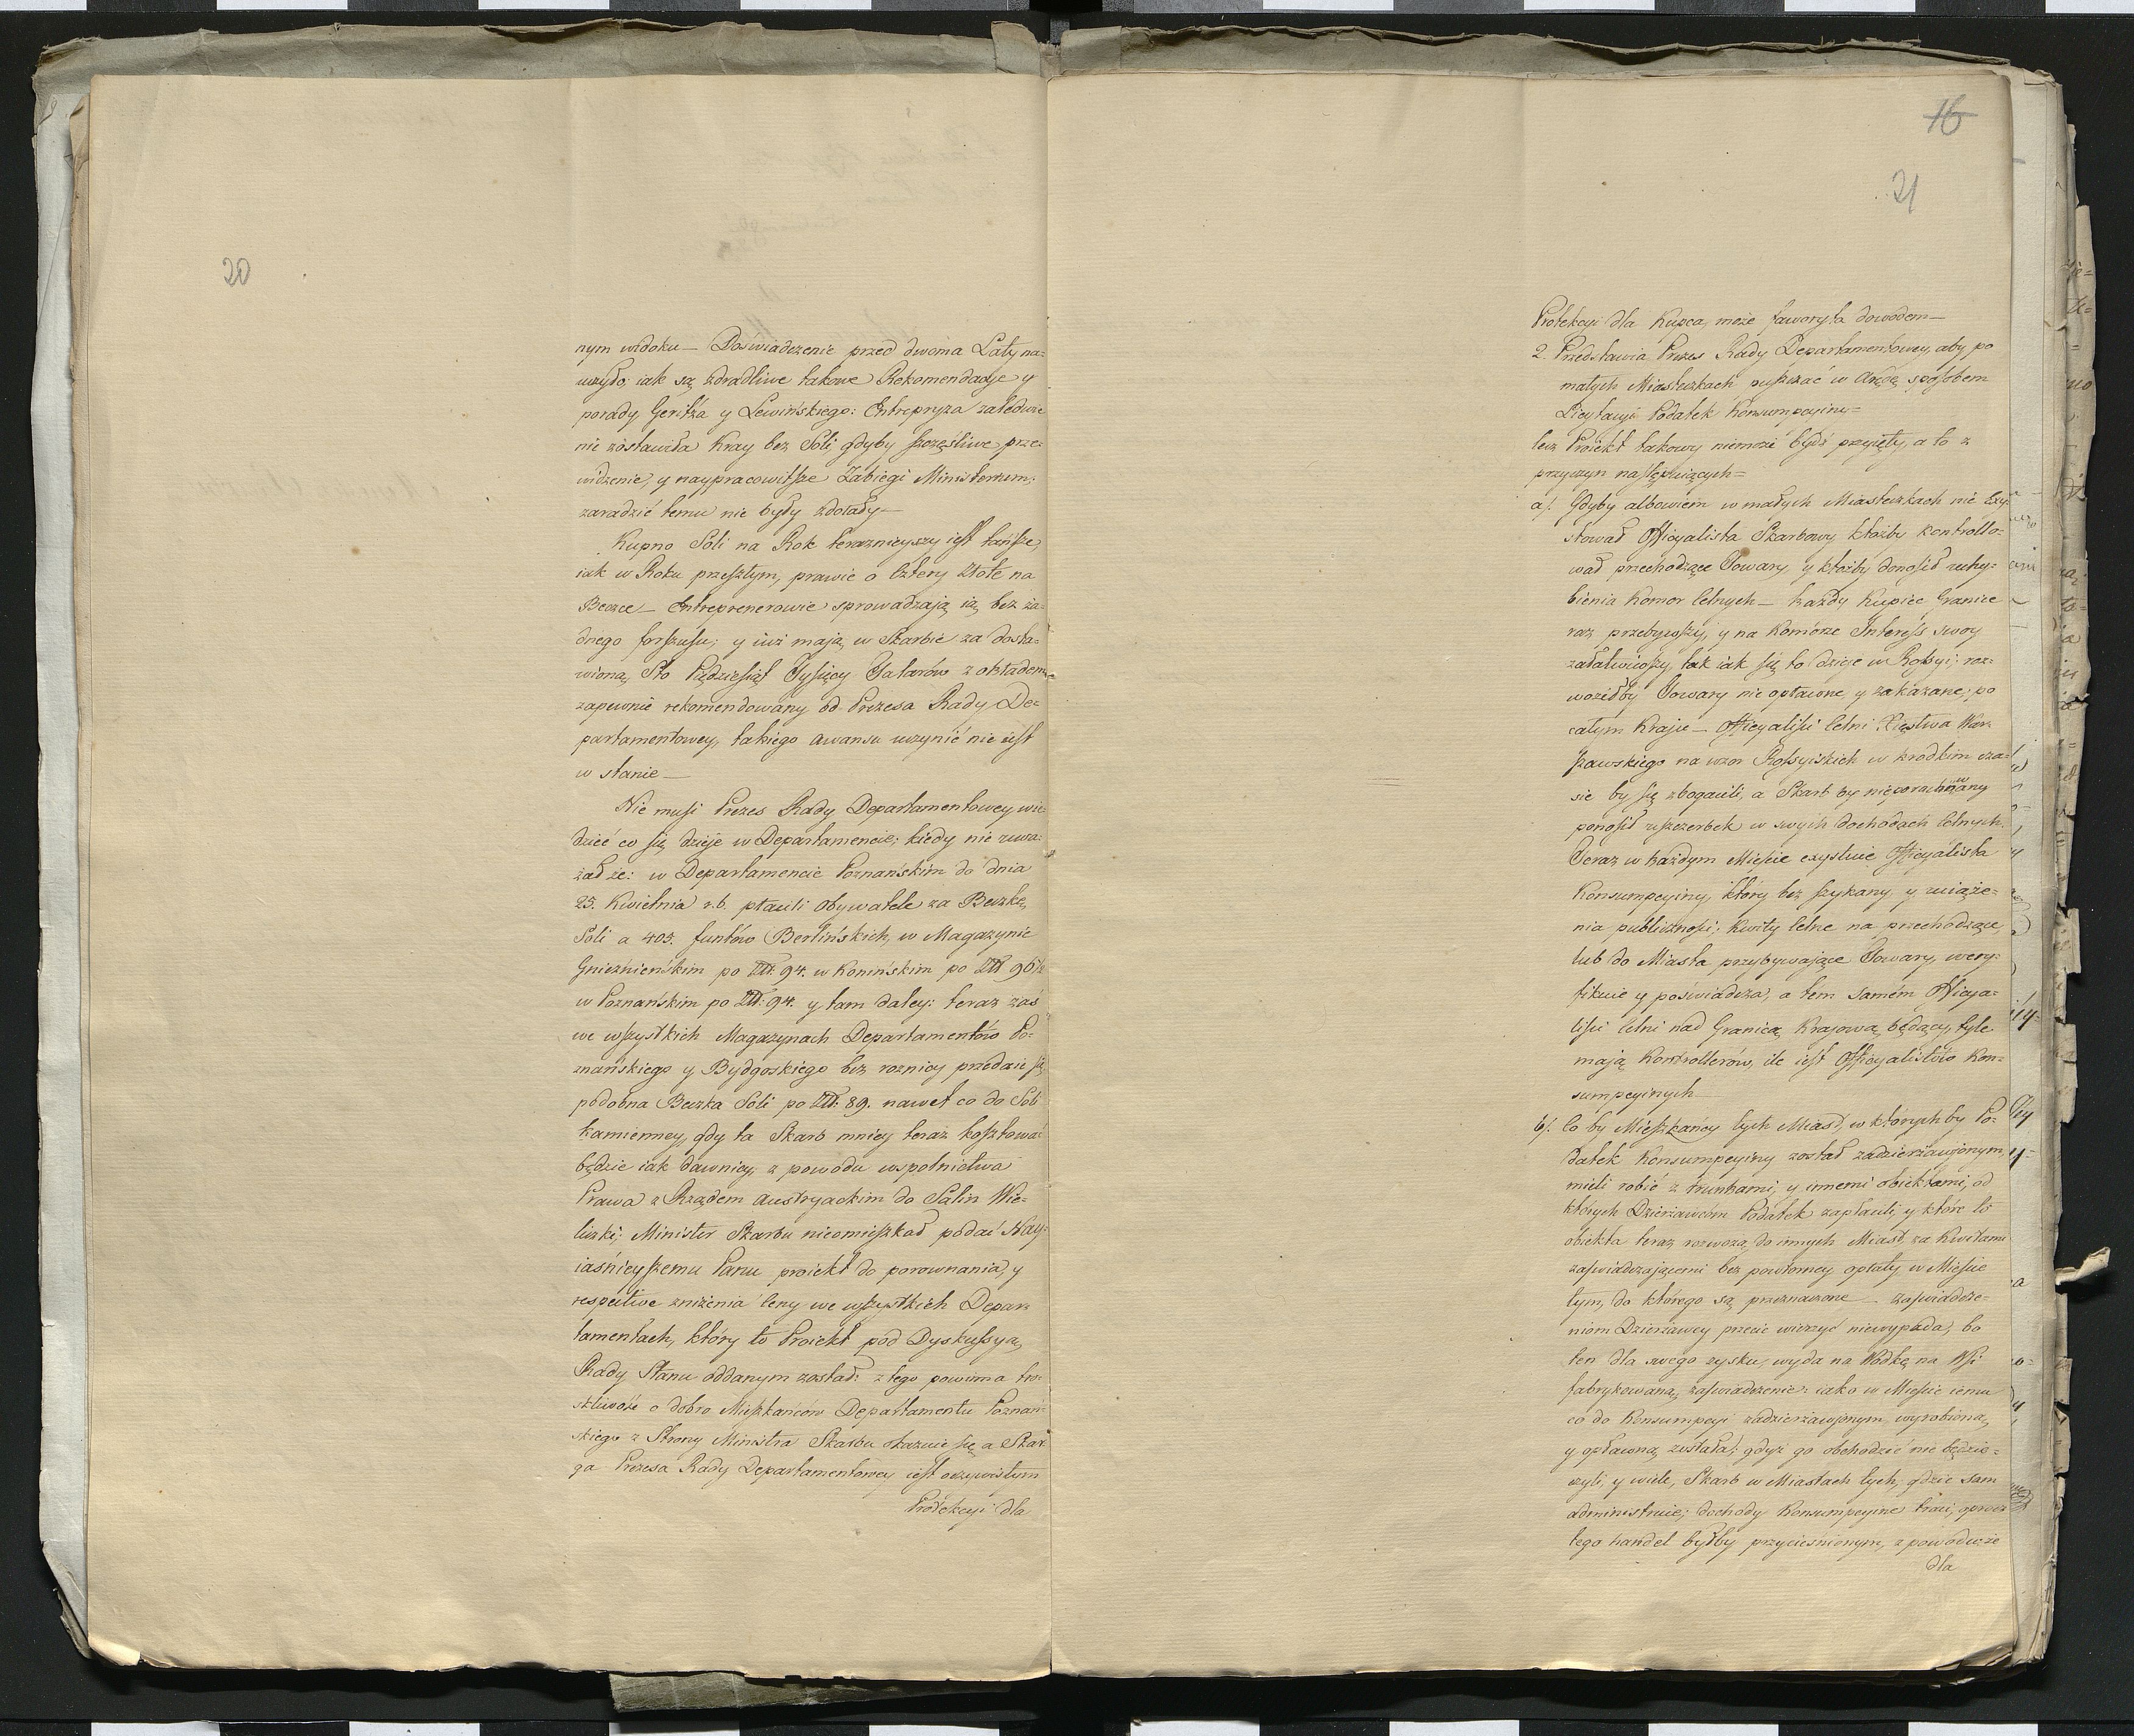 20
nym widoku — Doświadczenie przed dwoma Laty na=
uczyło, iak są zdradliwe takowe Rekomendacye y
porady Geritza y Lewińskiego: Entrepryza zaledwie
nie zostawiła Kray bez Soli, gdyby szczęśliwe prze=
widzenie, y naypracowitsze Zabiegi Ministerium,
zaradzić temu nie były zdołały —
Kupno Soli na Rok teraznieyszy iest tańsze,
iak w Roku przeszłym, prawie o Cztery Złote na
Beczce — Entreprenerowie sprowadzają ią bez ża=
dnego forszusu, y iuż mają w Skarbie za dosta=
wioną Sto Pędziesiąt Tysięcy Talarów z okładem
zapewnie rekomendowany od Prezesa Rady De=
partamentowey, takiego awansu uczynić nie iest
w stanie —
Nie musi Prezes Rady Departamentowey wie=
dzieć co się dzieje w Departamencie, kiedy nie zuwa=
żał że: w Departamencie Poznańskim do dnia
25. Kwietnia r. b. płacili Obywatele za Beczkę
Soli a 403. funtów Berlińskich, w Magazynie
Gnieznieńskim po Zł: 94. w Konińskim po Zł 96½
w Poznańskim po Zł: 94. y tam daley: teraz zaś
we wszystkich Magazynach Departamentów Po=
znańskiego y Bydgoskiego bez roznicy przedaie się
podobna Beczka Soli po Zł: 89. nawet co do Soli
kamienney, gdy ta Skarb mniey teraz kosztować
będzie iak dawniey, z powodu wspolnictwa
Prawa z Rządem Austryackim do Salin Wie=
liczki; Minister Skarbu nieomieszkał podać Nay=
iaśnieyszemu Panu proiekt do porownania, y
respective zniżenia Ceny we wszystkich Depar=
tamentach, który to Proiekt pod Dyskussyą
Rady Stanu oddanym został: z tego powinna tro=
skliwość o dobro Mieszkańców Departamentu Poznań=
skiego z Strony Ministra Skarbu okazuie się, a Skar=
ga Prezesa Rady Departamentowey iest oczywistym
Protekcyi dla
16
21
Protekcyi dla Kupca, może faworyta dowodem —
2. Przedstawia Prezes Rady Departamentowey, aby po
małych Miasteczkach puszczać w Arędę sposobem
Licytacyi Podatek Konsumpcyiny =
lecz Proiekt takowy niemoże bydź przyięty, a to z
przyczyn następuiących =
a/. Gdyby albowiem w małych Miasteczkach nie Exy=
stował Officyalista Skarbowy, któżby kontrollo=
wał przechodzące Towary, y któżby donosił uchy=
bienia Komor Celnych — każdy Kupiec Granice
raz przebywszy, y na Komorze Interess swoy
załatwiwszy, tak iak się to dzieje w Rossyi, roz=
woziłby Towary nie opłacone, y zakazane, po
całym Kraju — Officyaliści Celni Xięstwa War=
szawskiego na wzor Rossyiskich w krodkim cza=
sie by się zbogacili, a Skarb by nieporachowany
ponosił uszczerbek w swych dochodach Celnych.
Teraz w każdym Mieście exystuie Officyalista
Konsumpcyiny, który bez szykany, y uciąże=
nia publiczności, kwity Celne na przechodzące,
lub do Miasta przybywające Towary, wery=
fikuie y poświadcza, a tém samém Officya=
liści Celni nad Granicą Krajową będący, tyle
mają Kontrollerów, ile iest Officyalistów Kon=
sumpcyinych
b/. Co by Mieszkańcy tych Miast, w których by Po=
datek Konsumpcyiny został zadzierżawionym,
mieli robić z trunkami, y innemi obiektami, od
których Dzierżawcom Podatek zapłacili, y które to
obiekta teraz rozwożą do innych Miast, za Kwitami
zaświadczającemi bez powtorney opłaty w Mieście
tym, do którego są przeznaczone. Zaświadcze=
niom Dzierżawcy przecie wierzyć niewypada, bo
ten dla swego zysku, wyda na Wódkę na Wsi
fabrykowaną, zaświadczenie: iako w Mieście iemu
co do Konsumpcyi zadzierżawionym, wyrobioną,
y opłaconą została: gdyż go obchodzić nie będzie =
czyli, y wiele, Skarb w Miastach tych, gdzie sam
administruie, dochody Konsumpcyine traci, oprócz
tego handel byłby przyciśnionym, z powodu: że
dla